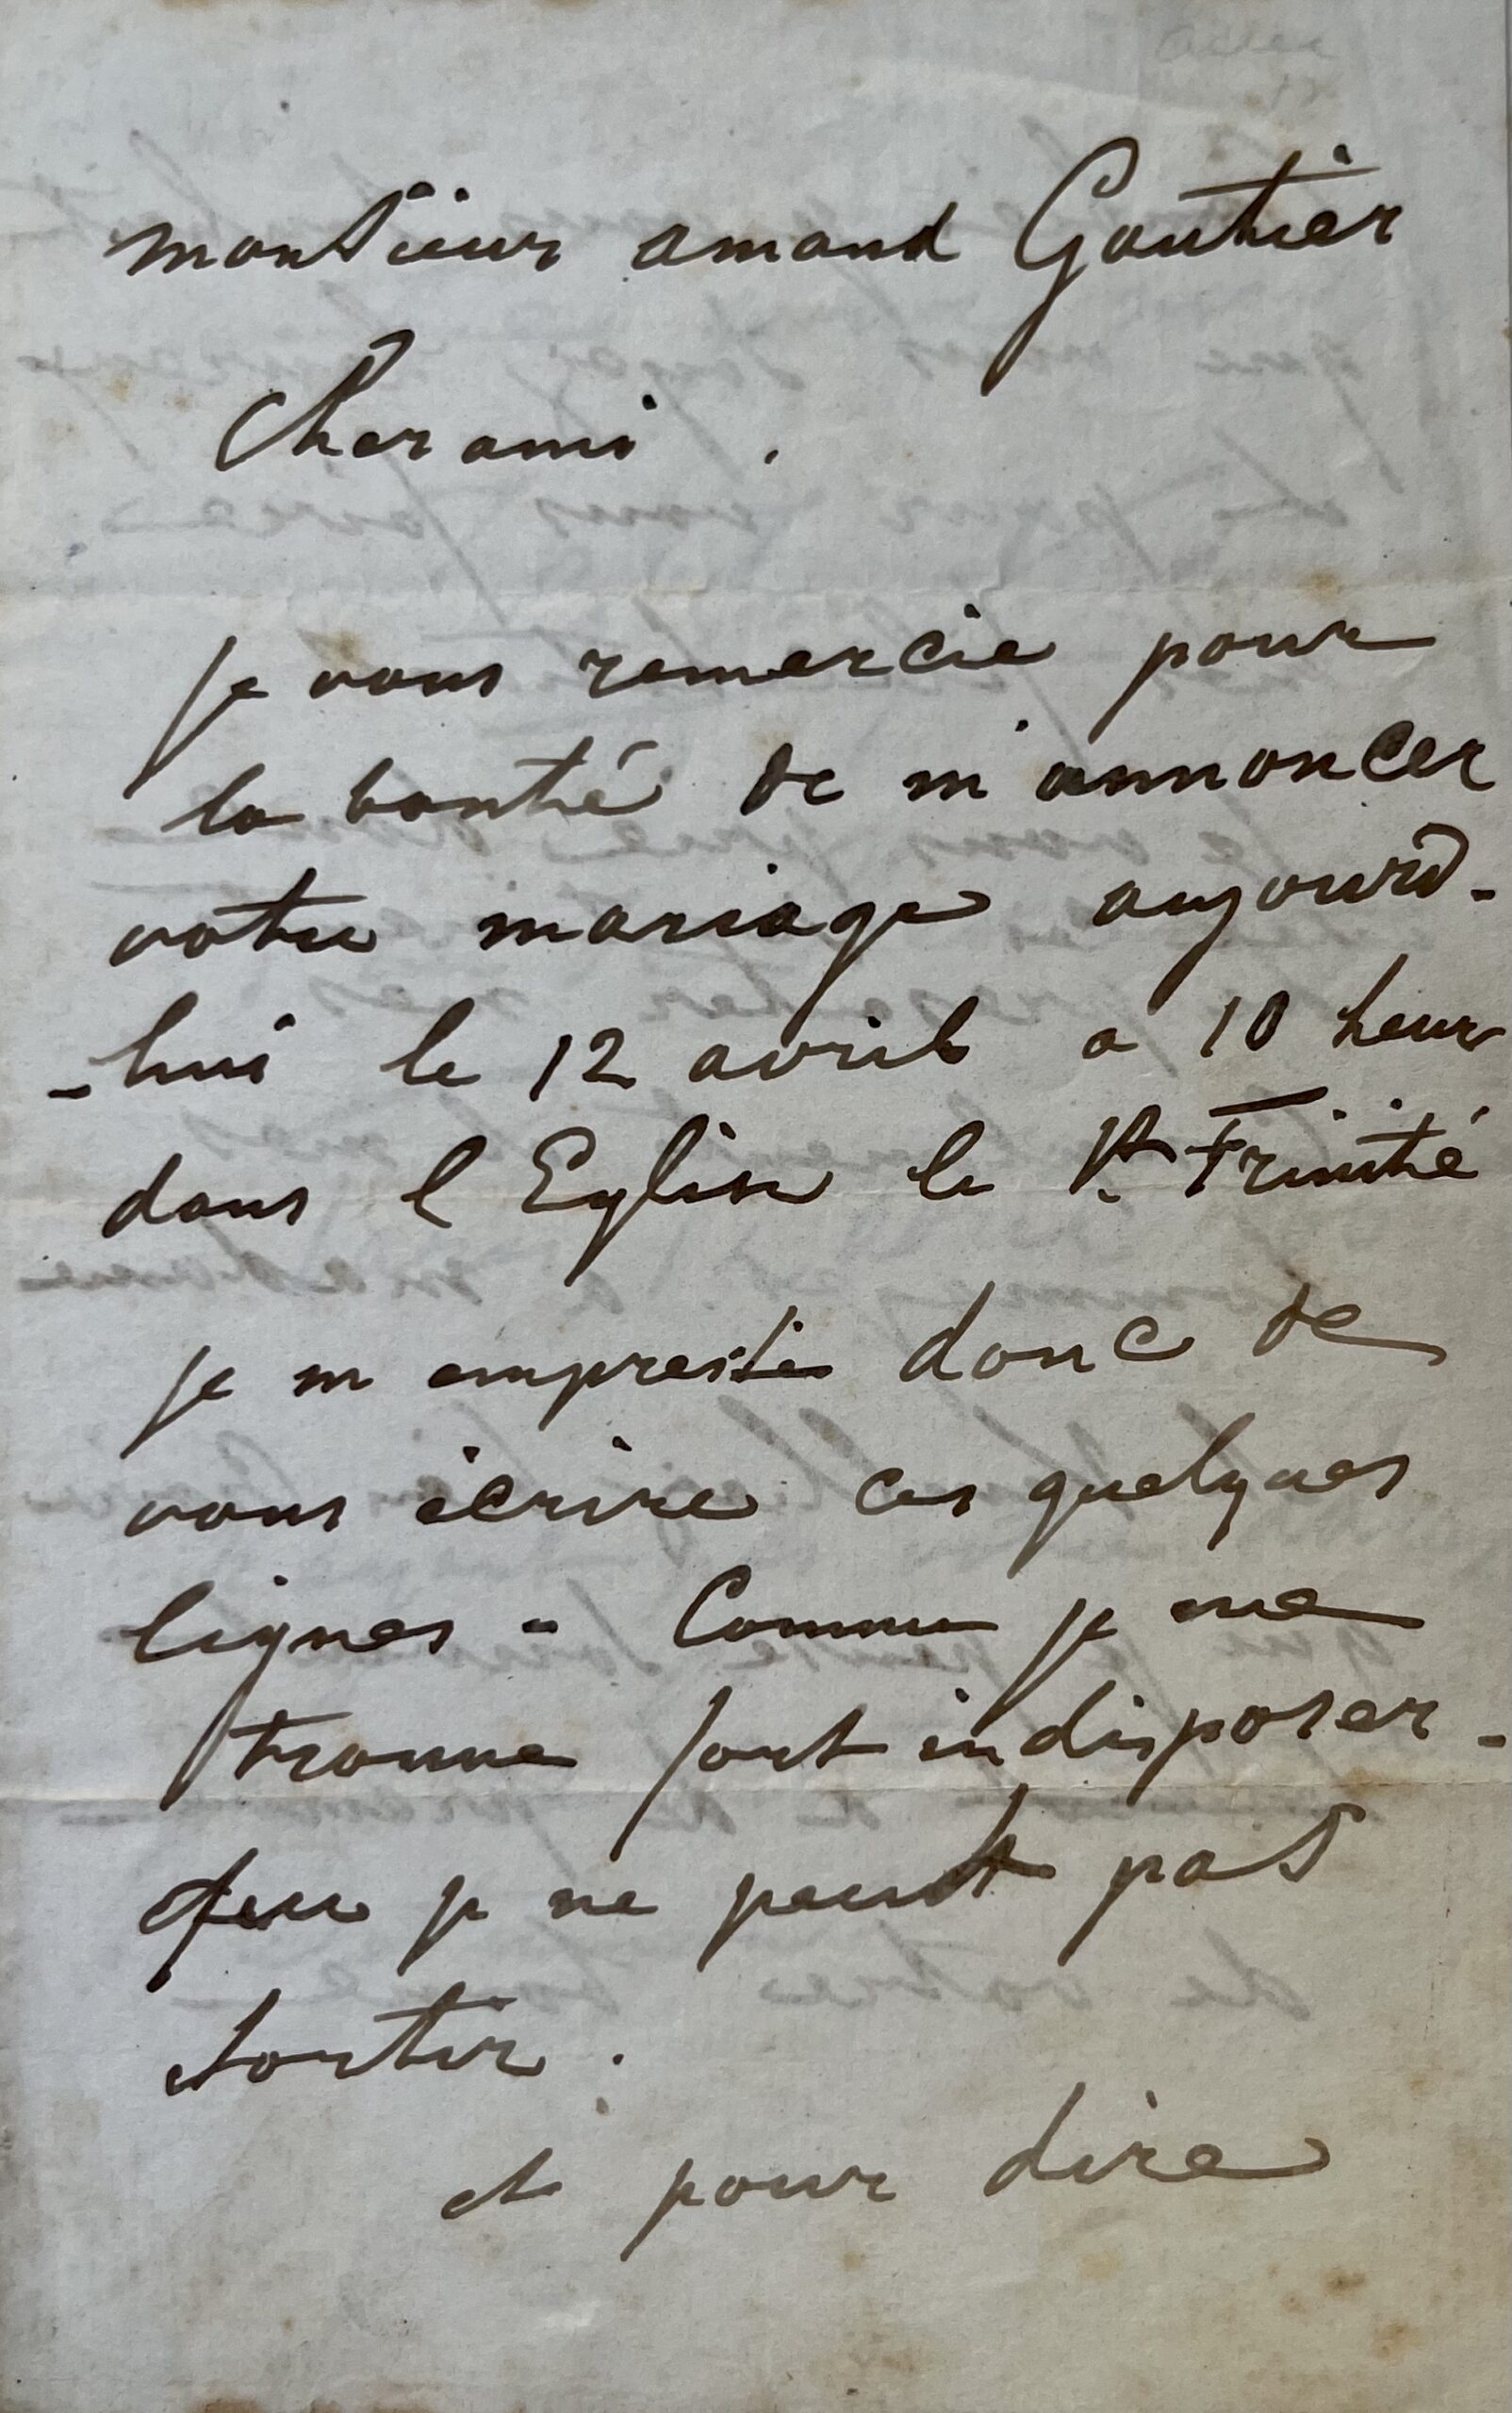 monsieur amand Gautier
Cher ami .
je vous remercie pour
la bonté de m annoncer
votre mariage aujourd-
-hui le 12 avril a 10 heur
dans l Eglise le St Trinité
je m empresse donc de
vous écrire ces quelques
lignes - Comme je me
trouve fort indisposer -
que je ne peut pas
sortir .
et pour dire